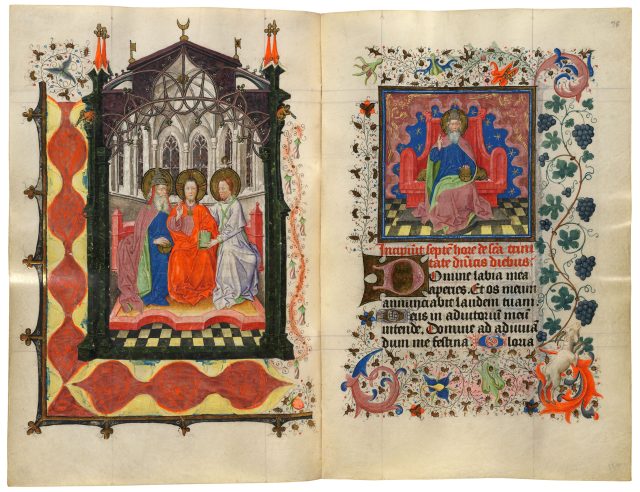 Incipiūt septē hore de scā trini
tate dn̄icis diebus.
Domine labia mea
aperies. Et os meum
annunciabit laudem tuam
Deus in adiutorium meū
intende. Domine ad adiuuā
dum me festina Gloria